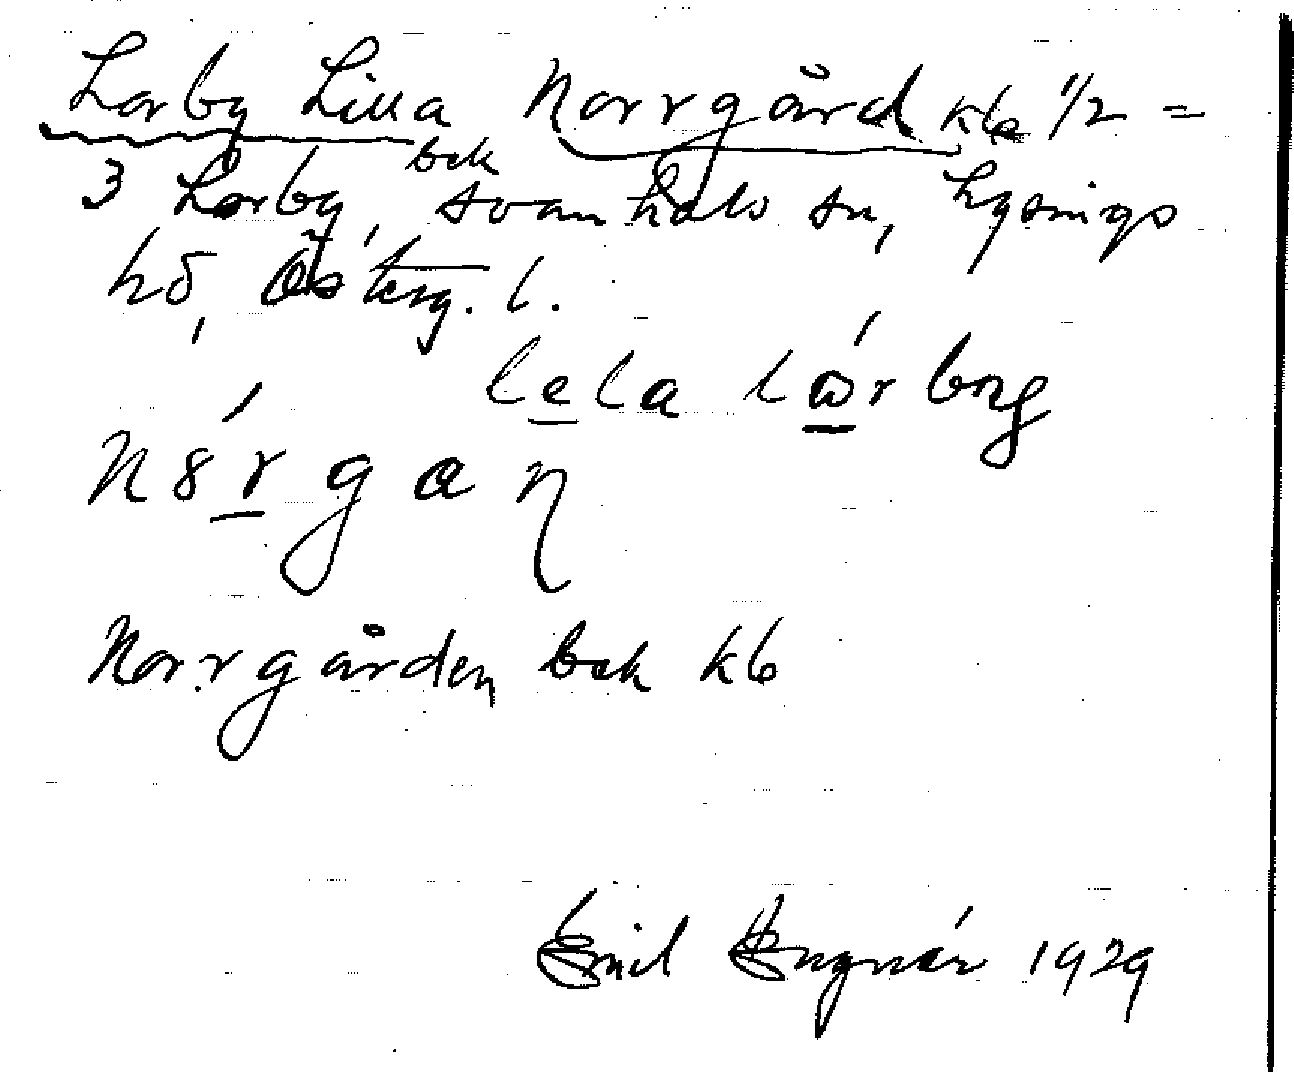 Lorby Lilla Norrgård kb 1/2 =
3 Lorby, bek Svanhals sn, Lysings
hd, Österg. l.
lela lɷ́rbyg
n8́rgaŋ
Norrgården bek kb
Emil 1929